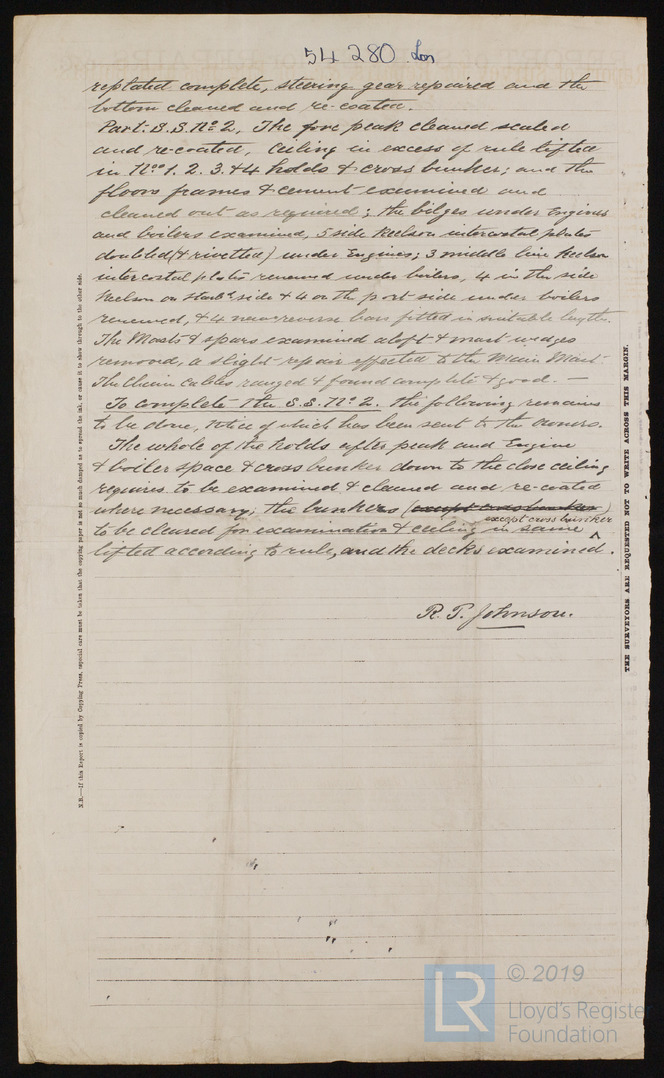 54280 Lon
replated complete, steering gear repaired and the
bottom cleaned and re-coated.
Part: S.S. No 2, The fore peak cleaned scaled
and re-coated, Ceiling in excess of rule lifted
in Nos 1. 2. 3. & 4 holds & cross bunker; and the
floors frames & cement examined and
cleaned out as required; the bilges under Engines
and boilers examined, 5 side keelson intercostal plates
doubled (& rivetted) under Engines; 3 middle line keelson
intercostal plates renewed under boilers, 4 in the side
keelson on starbd side & 4 on the port side under boilers
renewed, & 4 new reverse bars fitted in suitable lengths.
The Masts & spars examined aloft & mast wedges
removed, a slight repair effected to the Main Mast.
The Chain Cables ranged & found complete & good. —
To complete the S.S. No 2. the following remains
to be done, notice of which has been sent to the owners.
The whole of the holds after peak and Engine
& boiler space & cross bunker down to the close ceiling
requires to be examined & cleaned and re-coated
where necessary; the bunkers (except cross bunker)
except cross bunker
to be cleared for examination & ceiling in same
lifted according to rule, and the decks examined.
R. T. Johnson.
N.B.—If this Report is copied by Copying Press, especial care must be taken that the copying paper is not so much damped as to spread the ink, or cause it to show through to the other side.
THE SURVEYORS ARE REQUESTED NOT TO WRITE ACROSS THIS MARGIN.
LR
© 2019
Lloyd's Registe
Foundation